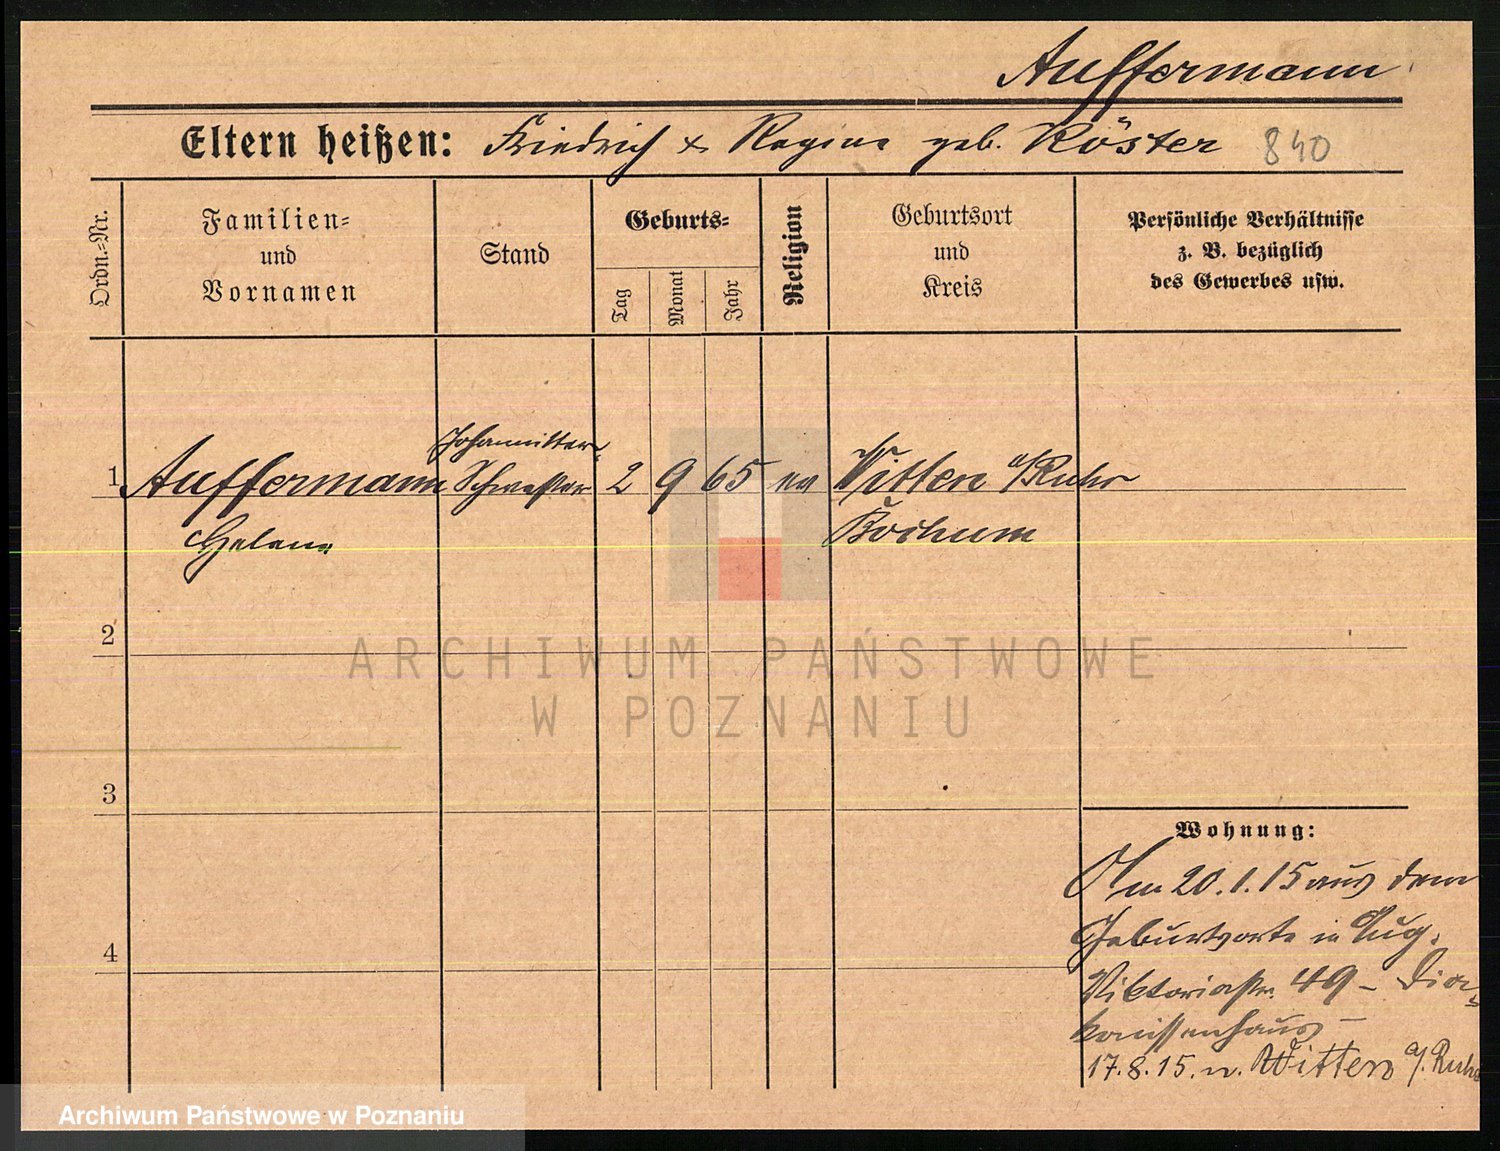 Auffermann
Eltern heißen: Friedrich & Regine geb. Köster 840
Ordn.=Nr.
Familien=
und
Vornamen
Stand
Geburts=
Tag
Monat
Jahr
Religion
Geburtsort
und
Kreis
Persönliche Verhältnisse
z. B. bezüglich
des Gewerbes usw.
1 Auffermann Johanniter- Schwester 2 9 65 ev Witten a/Ruhr
Helene Bochum
2
ARCHIWUM PAŃSTWOWE
W POZNANIU
3
Wohnung:
Am 20.1.15 aus dem
Geburtsorte in Aug.
4
Viktoriastr. 49 – Dia-
konissenhaus –
17.8.15. n. Witten a/. Ruhr
Archiwum Państwowe w Poznaniu